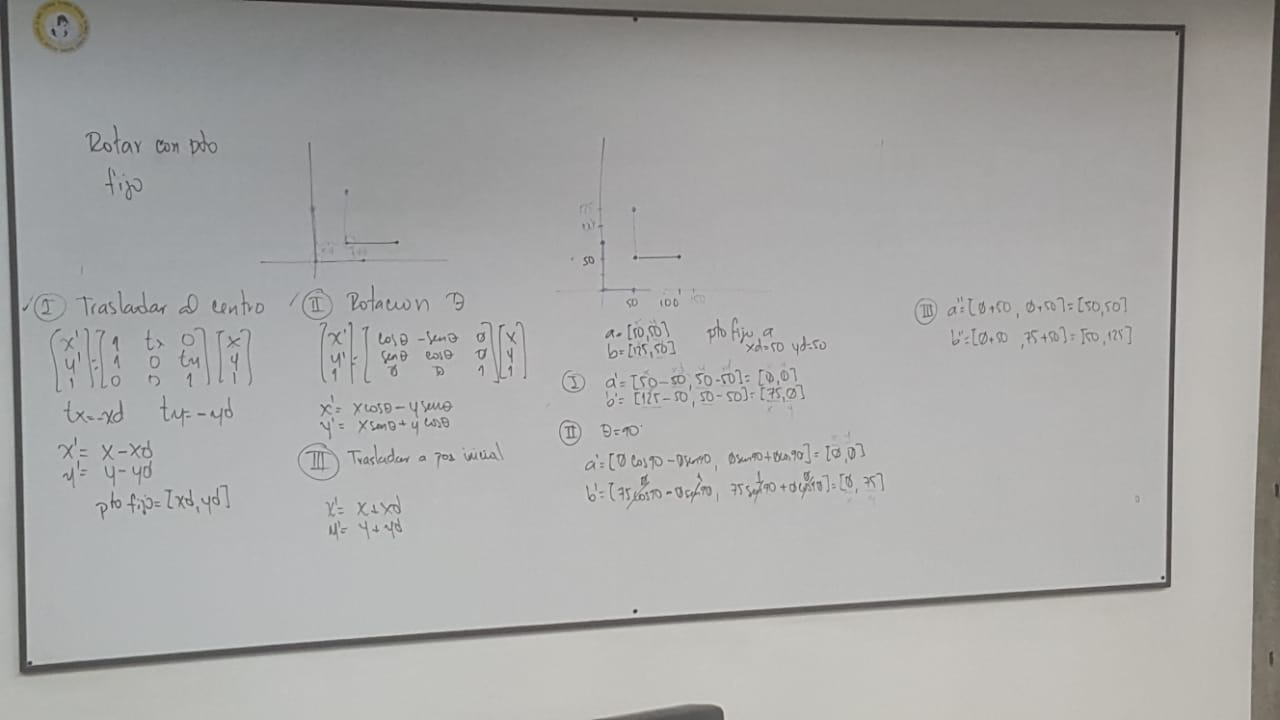 Rotar con pto
fijo
I Trasladar al centro
[x' y' 1] = [1 tx 0
1 0 ty
0 0 1] [x y 1]
tx=-xd ty=-yd
x'= x-xd
y'= y-yd
pto fijo=[xd,yd]
II Rotacion θ
[x' y' 1] = [cosθ -senθ 0
senθ cosθ 0
0 0 1] [x y 1]
x'= xcosθ-ysenθ
y'= xsenθ+ycosθ
III Trasladar a pos inicial
x'= x+xd
y'= y+yd
50
50 100 150
a=[50,50] pto fijo a
b=[125,50] xd=50 yd=50
I a'=[50-50,50-50]=[0,0]
b'=[125-50,50-50]=[75,0]
x y
II θ=90°
a'=[0cos90-0sen90, 0sen90+0cos90]=[0,0]
b'=[75cos90-0sen90, 75sen90+0cos90]=[0,75]
III a''=[0+50, 0+50]=[50,50]
b''=[0+50, 75+50]=[50,125]